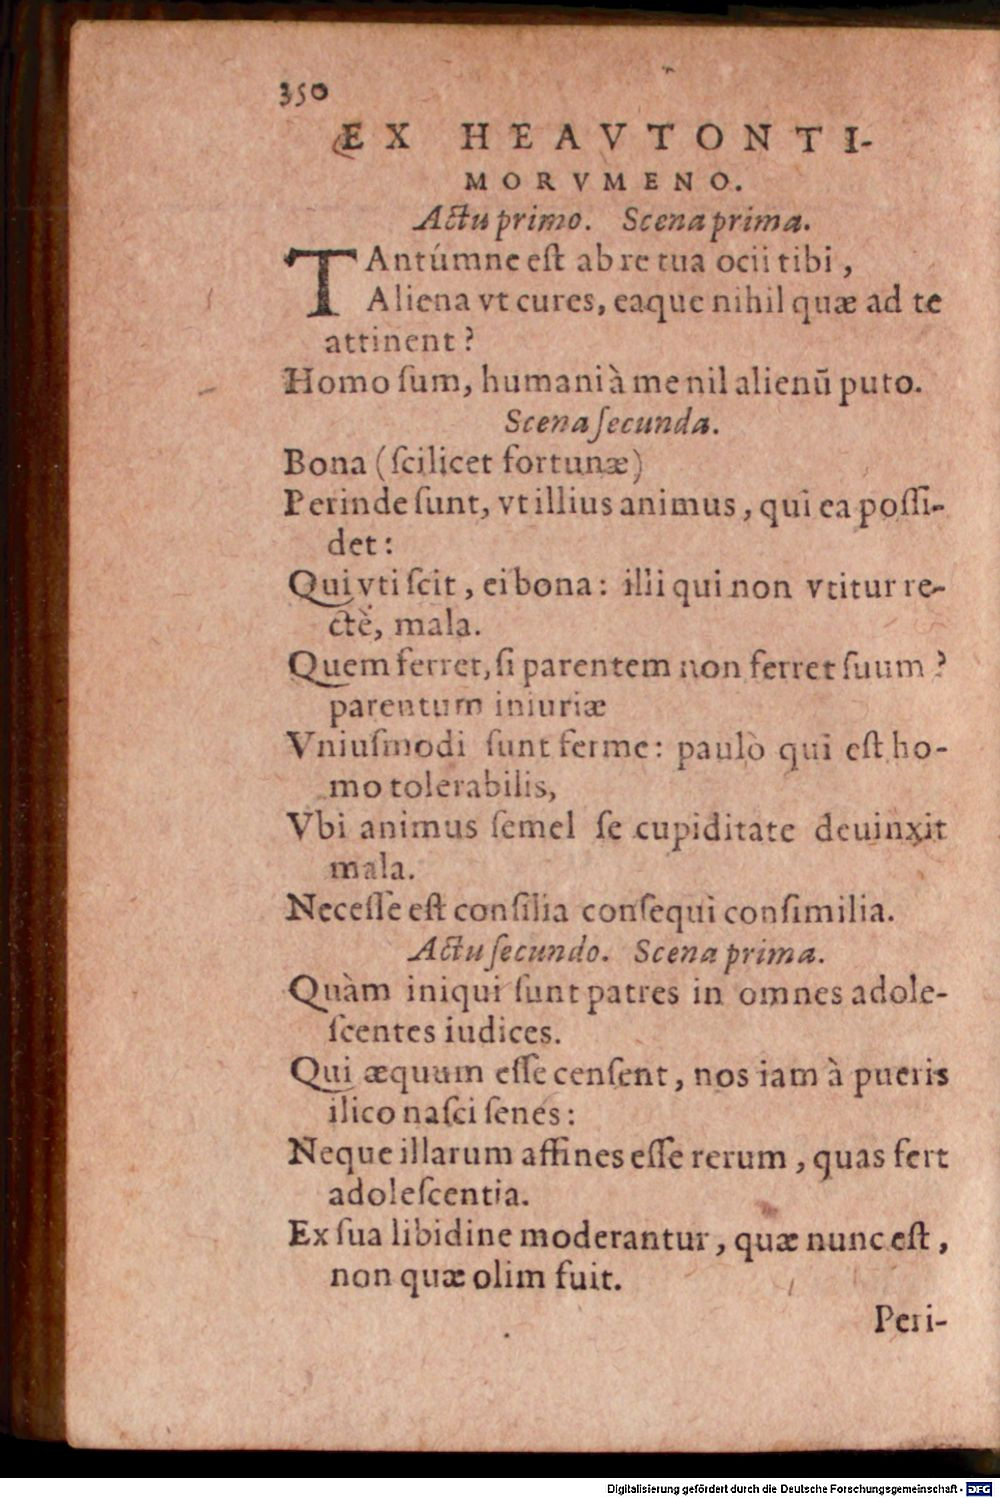 350
EX HEAVTONTI-
MORVMENO.
Actu primo. Scena prima.
TAntúmne eſt ab re tua ocii tibi,
Aliena vt cures, eaque nihil quæ ad te
attinent?
Homo ſum, humani à me nil alienū puto.
Scena ſecunda.
Bona (ſcilicet fortunæ)
Perinde ſunt, vt illius animus, qui ea poſſi-
det:
Qui vti ſcit, ei bona: illi qui non vtitur re-
ctè, mala.
Quem ferret, ſi parentem non ferret ſuum?
parentum iniuriæ
Vniuſmodi ſunt ferme: paulò qui eſt ho-
mo tolerabilis,
Vbi animus ſemel ſe cupiditate deuinxit
mala.
Neceſſe eſt conſilia conſequi conſimilia.
Actu ſecundo. Scena prima.
Quàm iniqui ſunt patres in omnes adole-
ſcentes iudices.
Qui æquum eſſe cenſent, nos iam à pueris
ilico naſci ſenes:
Neque illarum affines eſſe rerum, quas fert
adoleſcentia.
Ex ſua libidine moderantur, quæ nunc eſt,
non quæ olim fuit.
Peri-
Digitalisierung gefördert durch die Deutsche Forschungsgemeinschaft - DFG